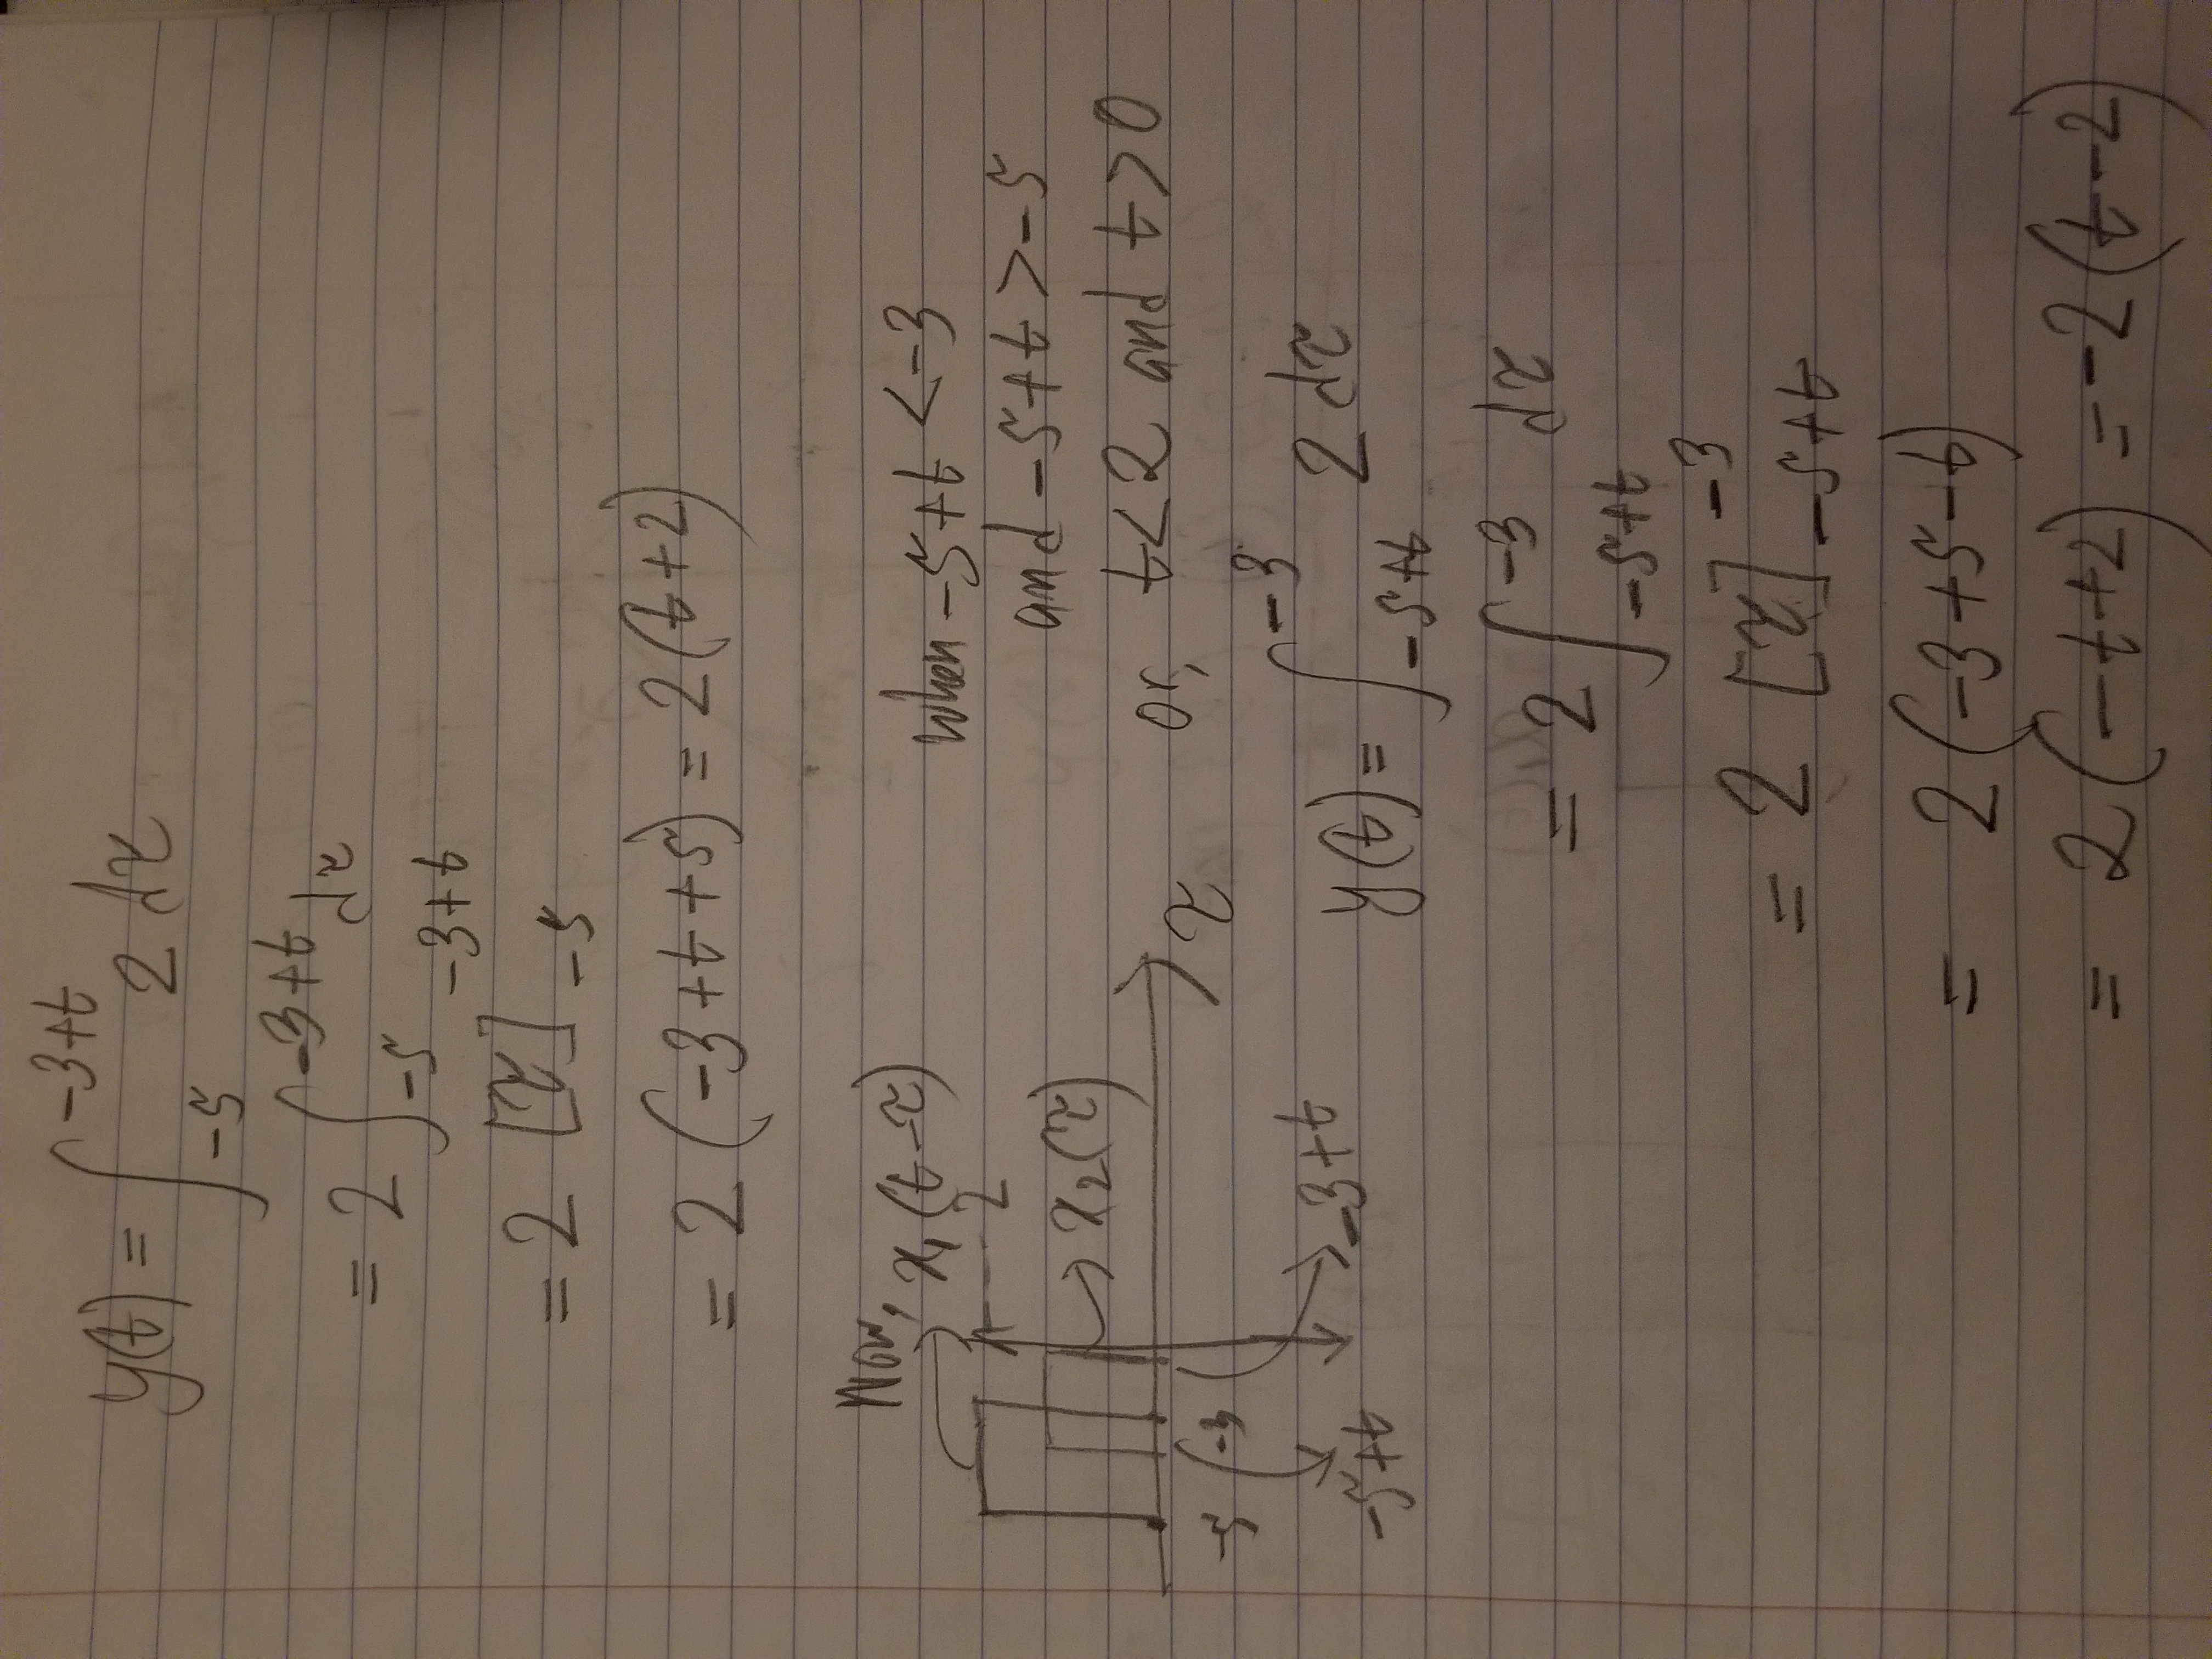 y(t) = ∫_{-5}^{-3+t} 2 dτ
= 2 ∫_{-5}^{-3+t} dτ
= 2 [τ]_{-5}^{-3+t}
= 2 (-3+t+5) = 2(t+2)
Now,
x₁(t-τ)
2
x₂(τ)
τ
-5
-3
-5+t
-3+t
when -5+t < -3
and -5+t > -5
or, t<2 and t>0
y(t) = ∫_{-5+t}^{-3} 2 dτ
= 2 ∫_{-5+t}^{-3} dτ
= 2 [τ]_{-5+t}^{-3}
= 2 (-3+5-t)
= 2 (-t+2) = -2(t-2)